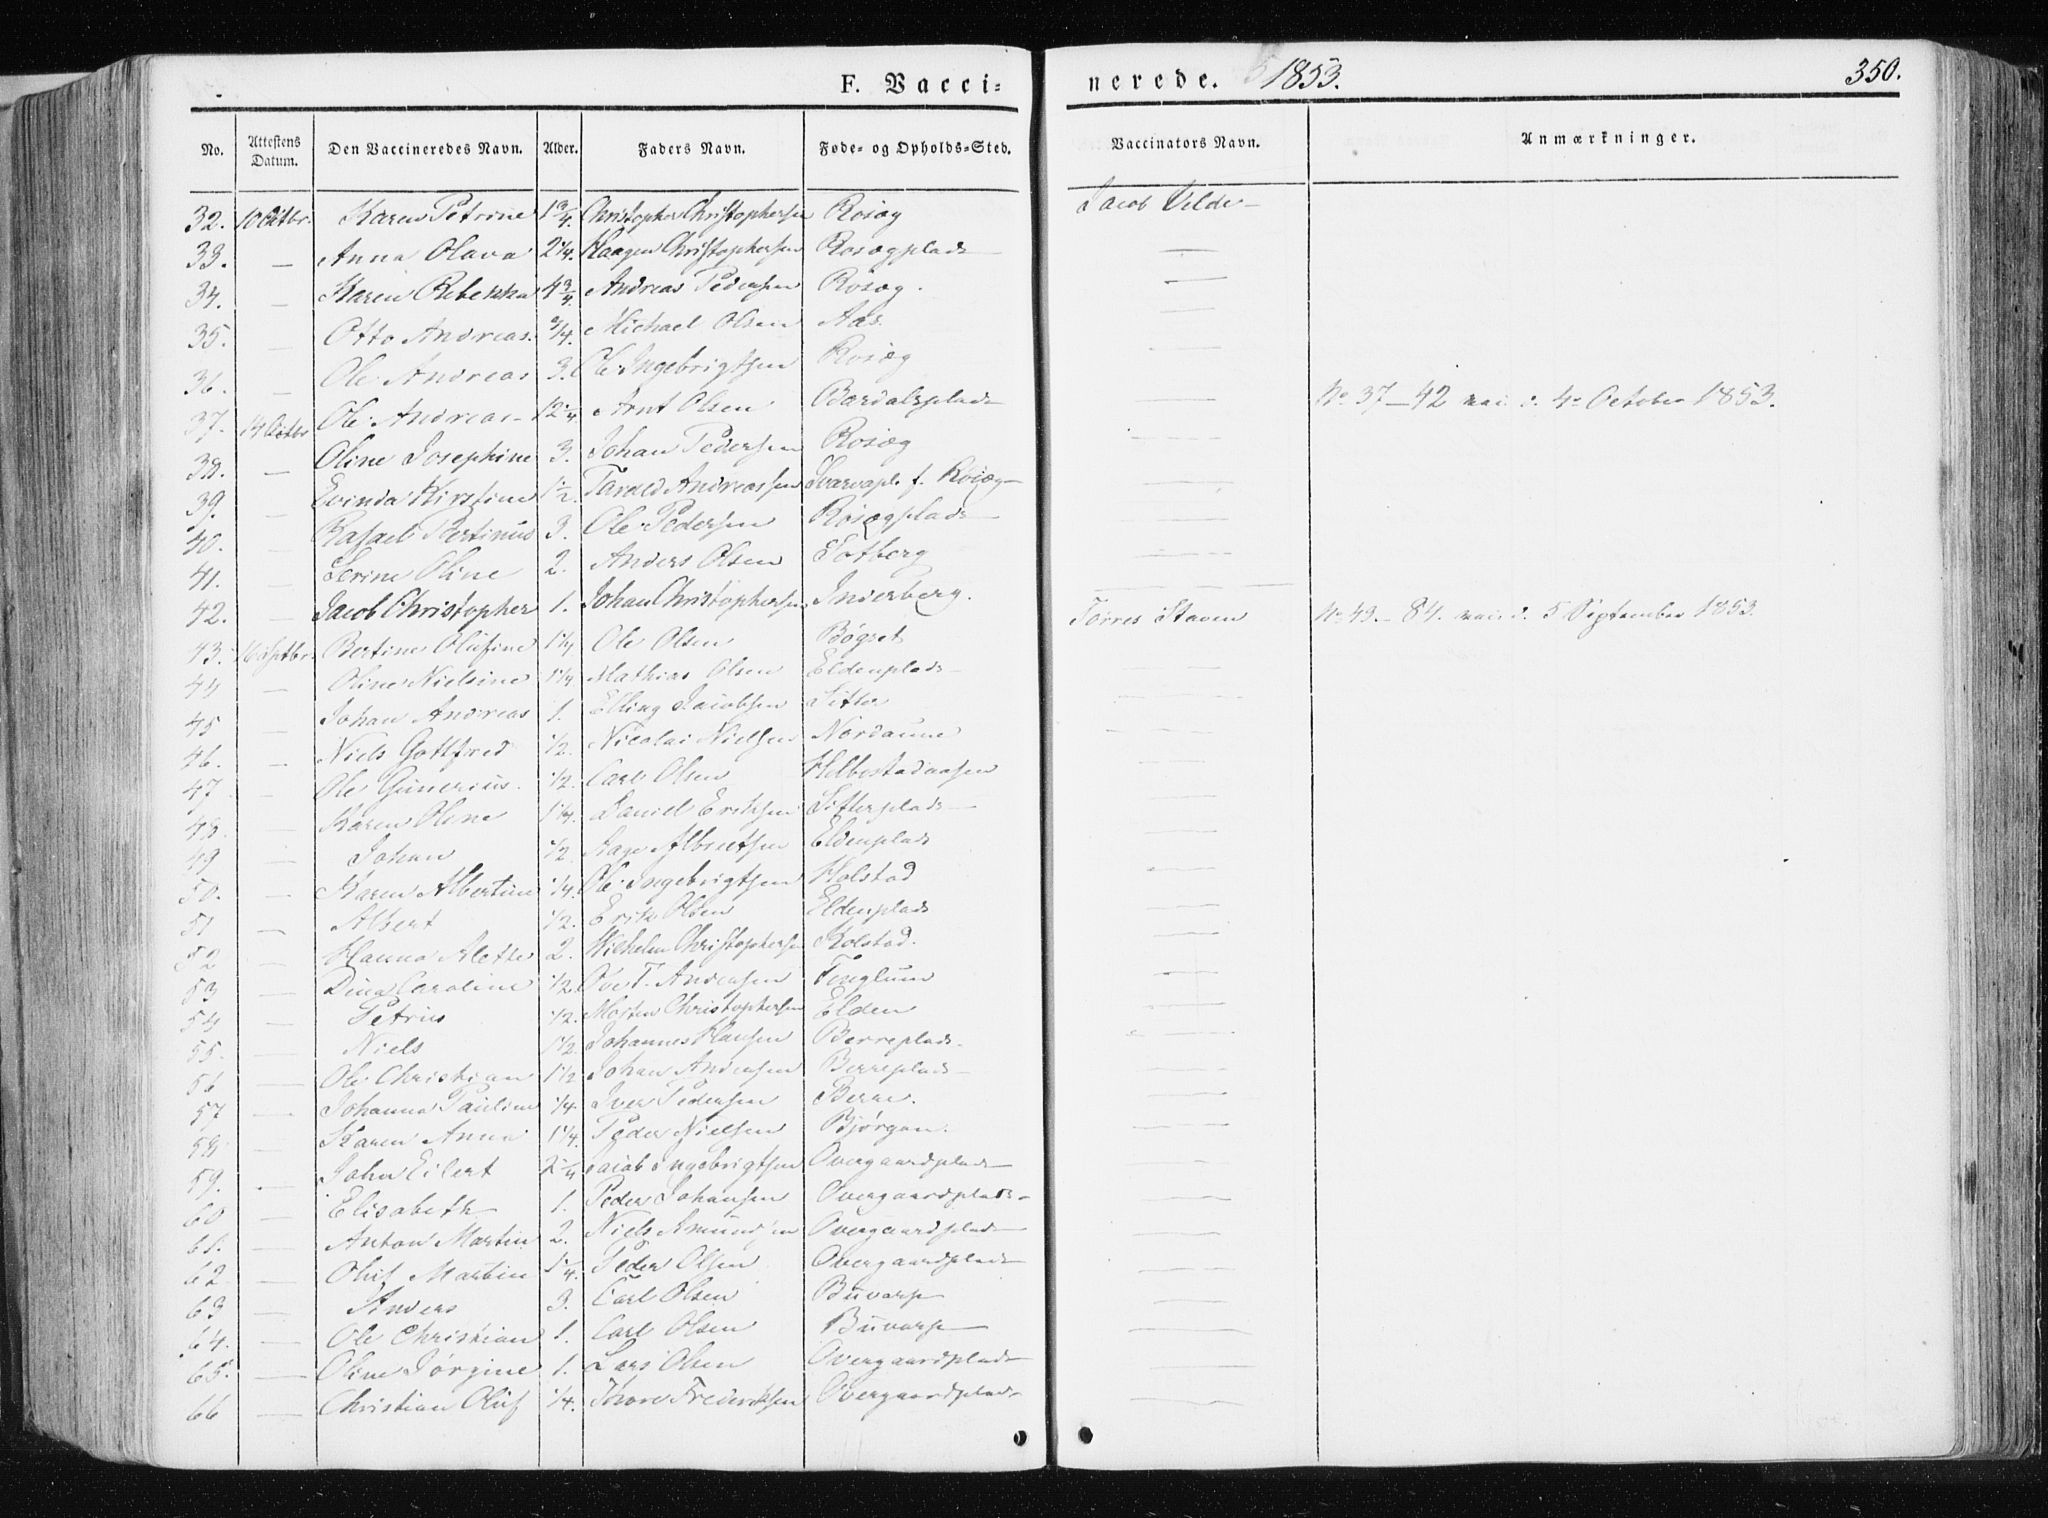 F. Vacci-
nerede. 1853. 350.
No. Attestens Datum. Den Vaccineredes Navn. Alder. Faders Navn. Føde- og Opholds-Sted. Vaccinators Navn. Anmærkninger.
32. 10 Octbr. Karen Petrine 1 3/4. Christopher Christophersen Rosæg Jacob Velde
33. — Anna Olava 2 1/4. Haagen Christophersen Rosægplads —
34. — Karen Rebekka 4 3/4. Andreas Pedersen Rosæg. —
35. — Otto Andreas. 3/4. Michael Olsen Aas. —
36. — Ole Andreas 3. Ole Ingebrigtsen Rosæg —
37. 14 Octbr Ole Andreas 12 1/4 Arnt Olsen Bardalsplads — No 37—42 vac. d. 4de October 1853.
38. — Oline Josephine 3. Johan Pedersen Rosæg —
39. — Evinda Kirstine 1 1/2. Tarald Andreassen Svarvapl. f. Rosæg —
40. — Rafael Bertinus 3. Ole Pedersen Rosægplads —
41. — Serine Oline 2. Anders Olsen Solberg —
42. — Jacob Christopher 1. Johan Christophersen Inderberg. —
43. 16 Septbr. Bertine Olufine 1 1/4 Ole Olsen Bøgset Torres Staven No 43.—84. vac. d. 5 September 1853.
44 — Oline Nielsine 1 1/4 Mathias Olsen Eldenplads —
45 — Johan Andreas 1. Elling Jacobsen Sitter —
46. — Niels Gottfred 1/2. Nicolai Nielsen Nordaune —
47 — Ole Gunerius. 1/2. Carl Olsen Helbostadaasen —
48. — Karen Oline 1 1/4. Daniel Eriksen Sitterplads —
49 — Johan 1/2. Aage Albrectsen Eldenplads —
50. — Karen Albertine 1/4. Ole Ingebrigtsen Holstad —
51 — Albert 1/2. Erik Olsen Eldenplads —
52 — Hanna Mette 2. Wilhelm Christophersen Holstad. —
53 — Dina Caroline 1/2. Ove T. Andersen Tinglum —
54 — Petrus 1/2. Morten Christophersen Elden —
55. — Niels 1 1/2 Johannes Hansen Berreplads. —
56 — Ole Christian 1 1/2 Johan Andersen Berreplads —
57 — Johanna Pauline 1/4. Iver Pedersen Berre. —
58 — Karen Anna 1 1/4. Peder Nielsen Bjørgan. —
59. — John Eilert 2 1/4 Jacob Ingebrigtsen Overgaardplads —
60 — Elisabeth 1. Peder Johansen Overgaardplads —
61. — Anton Martin 2. Niels Amundsen Overgaardplads —
62 — Oluf Martin 1 1/4. Peder Olsen Overgaardplads —
63 — Anders 3. Carl Olsen Buvarp —
64. — Ole Christian 1. Carl Olsen Buvarp —
65. — Oline Jørgine 1. Lars Olsen Overgaardplads —
66 — Christian Oluf 1/4. Thore Frederiksen Overgaardplads —